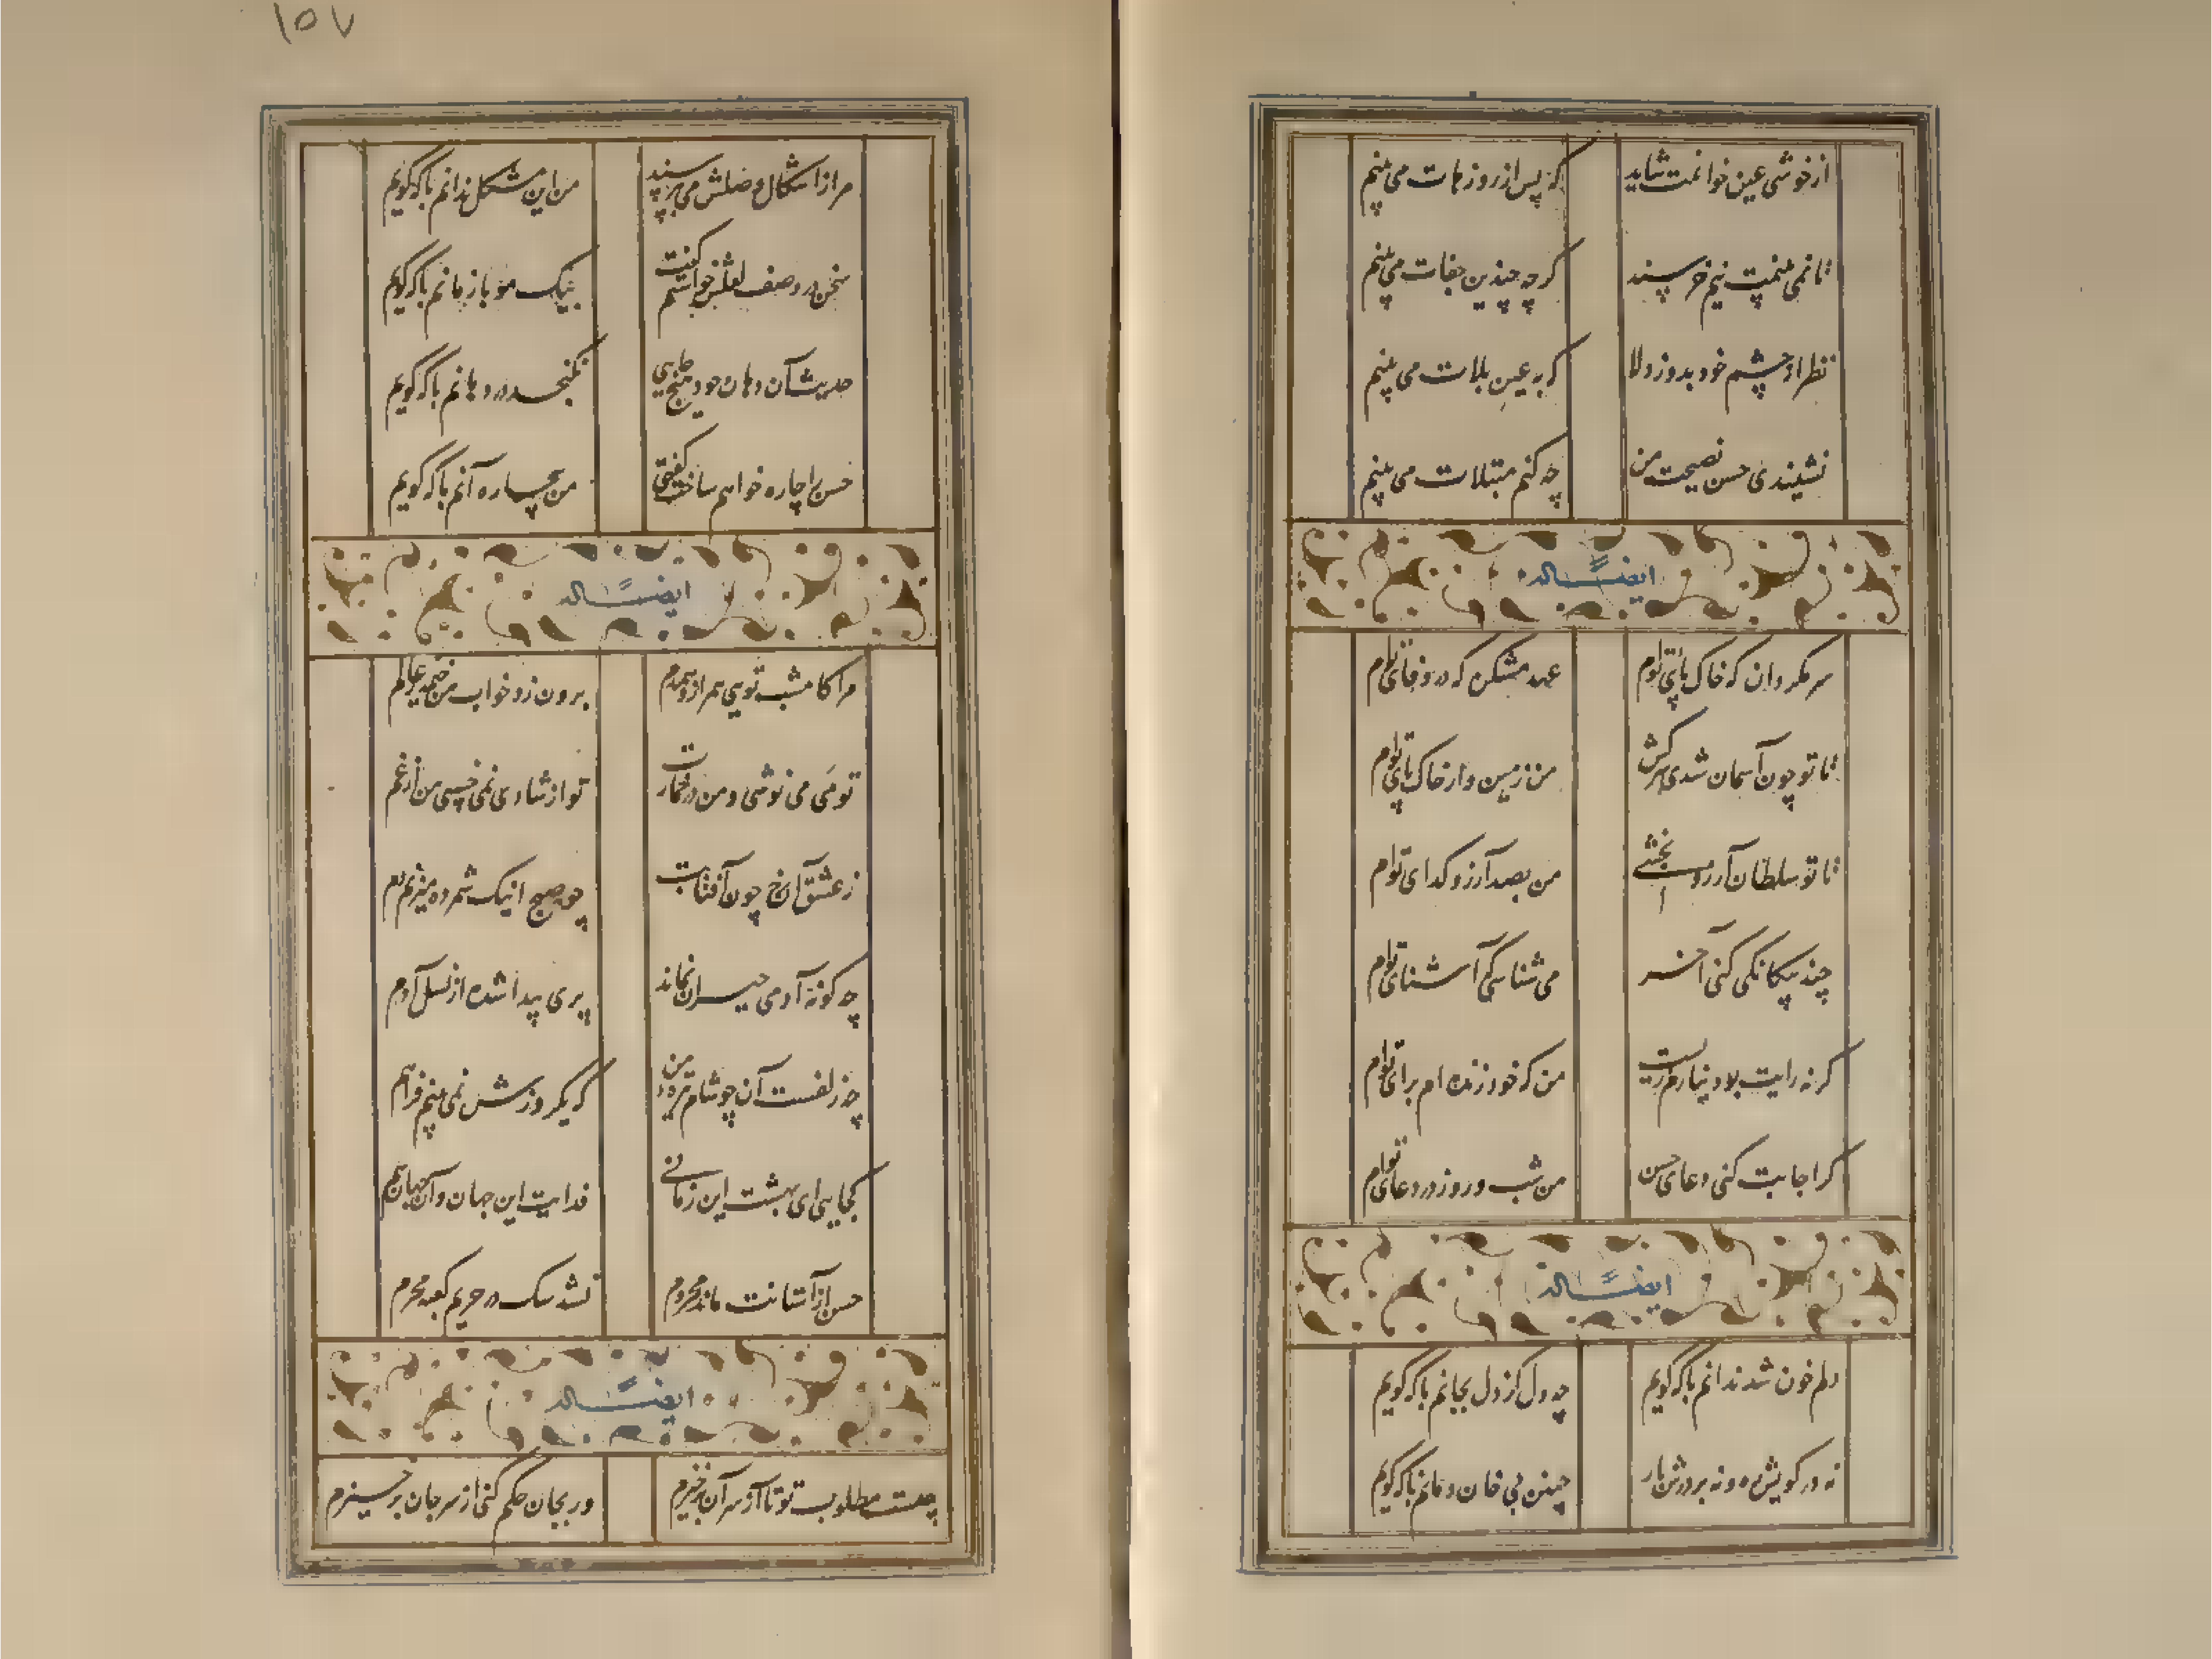 ۱۵۷
از خوشی عین خوانمت شاید
که پس از روزهات می بینم
تا نمی بینمت نیم خرسند
گرچه چندین جفات می بینم
نظر از چشم خود بدوز دلا
که به عین بلات می بینم
نشنیدی حسن نصیحت من
چه کنم مبتلات می بینم
ایضاً له
سر مگردان که خاک پای توام
عهد مشکن که در وفای توام
تا تو چون آسمان شدی سرکش
من زمین وار خاک پای توام
تا تو سلطان آرزو بخشی
من بصد آرزو گدای توام
چند بیگانگی کنی آخر
می شناسی که آشنای توام
گر نه رایت بود نیارم زیست
من که خود زنده ام برای توام
گر اجابت کنی دعای حسن
من شب و روز در دعای توام
ایضاً له
دلم خون شد ندانم با که گویم
چه دل کز دل بجانم با که گویم
نه در کویش ره و نه بر درش بار
چنین بی خان و مانم با که گویم
مرا از اشکال وصلش می بپرسند
من این مشکل ندانم با که گویم
سخن در وصف لعلش خواستم گفت
بیک مو باز مانم با که گویم
حدیث آن دهان خود هیچ جایی
نگنجد در دهانم با که گویم
حسن را چاره خواهم ساخت گفتی
من بیچاره آنم با که گویم
ایضاً له
مرا کامشب تویی همراز و همدم
برون زد خواب من خیمه ز عالم
تو می می نوشی و من در خمارت
تو از شادی نمی خسبی من از غم
ز عشق آن رخ چون آفتابت
چو صبح اینک شمرده میزنم دم
چه گونه آدمی حیران نماند
پری پیدا شده از نسل آدم
چه زلفست آن چو شام تیره من
که یکروزش نمی بینم فراهم
کجایی ای بهشت این زمانی
فدایت این جهان و آن جهان هم
حسن از آستانت ماند محروم
نشد سک در حریم کعبه محرم
ایضاً له
چیست مطلوب تو تا از سر آن برخیزم
ور بجان حکم کنی از سر جان برخیزم